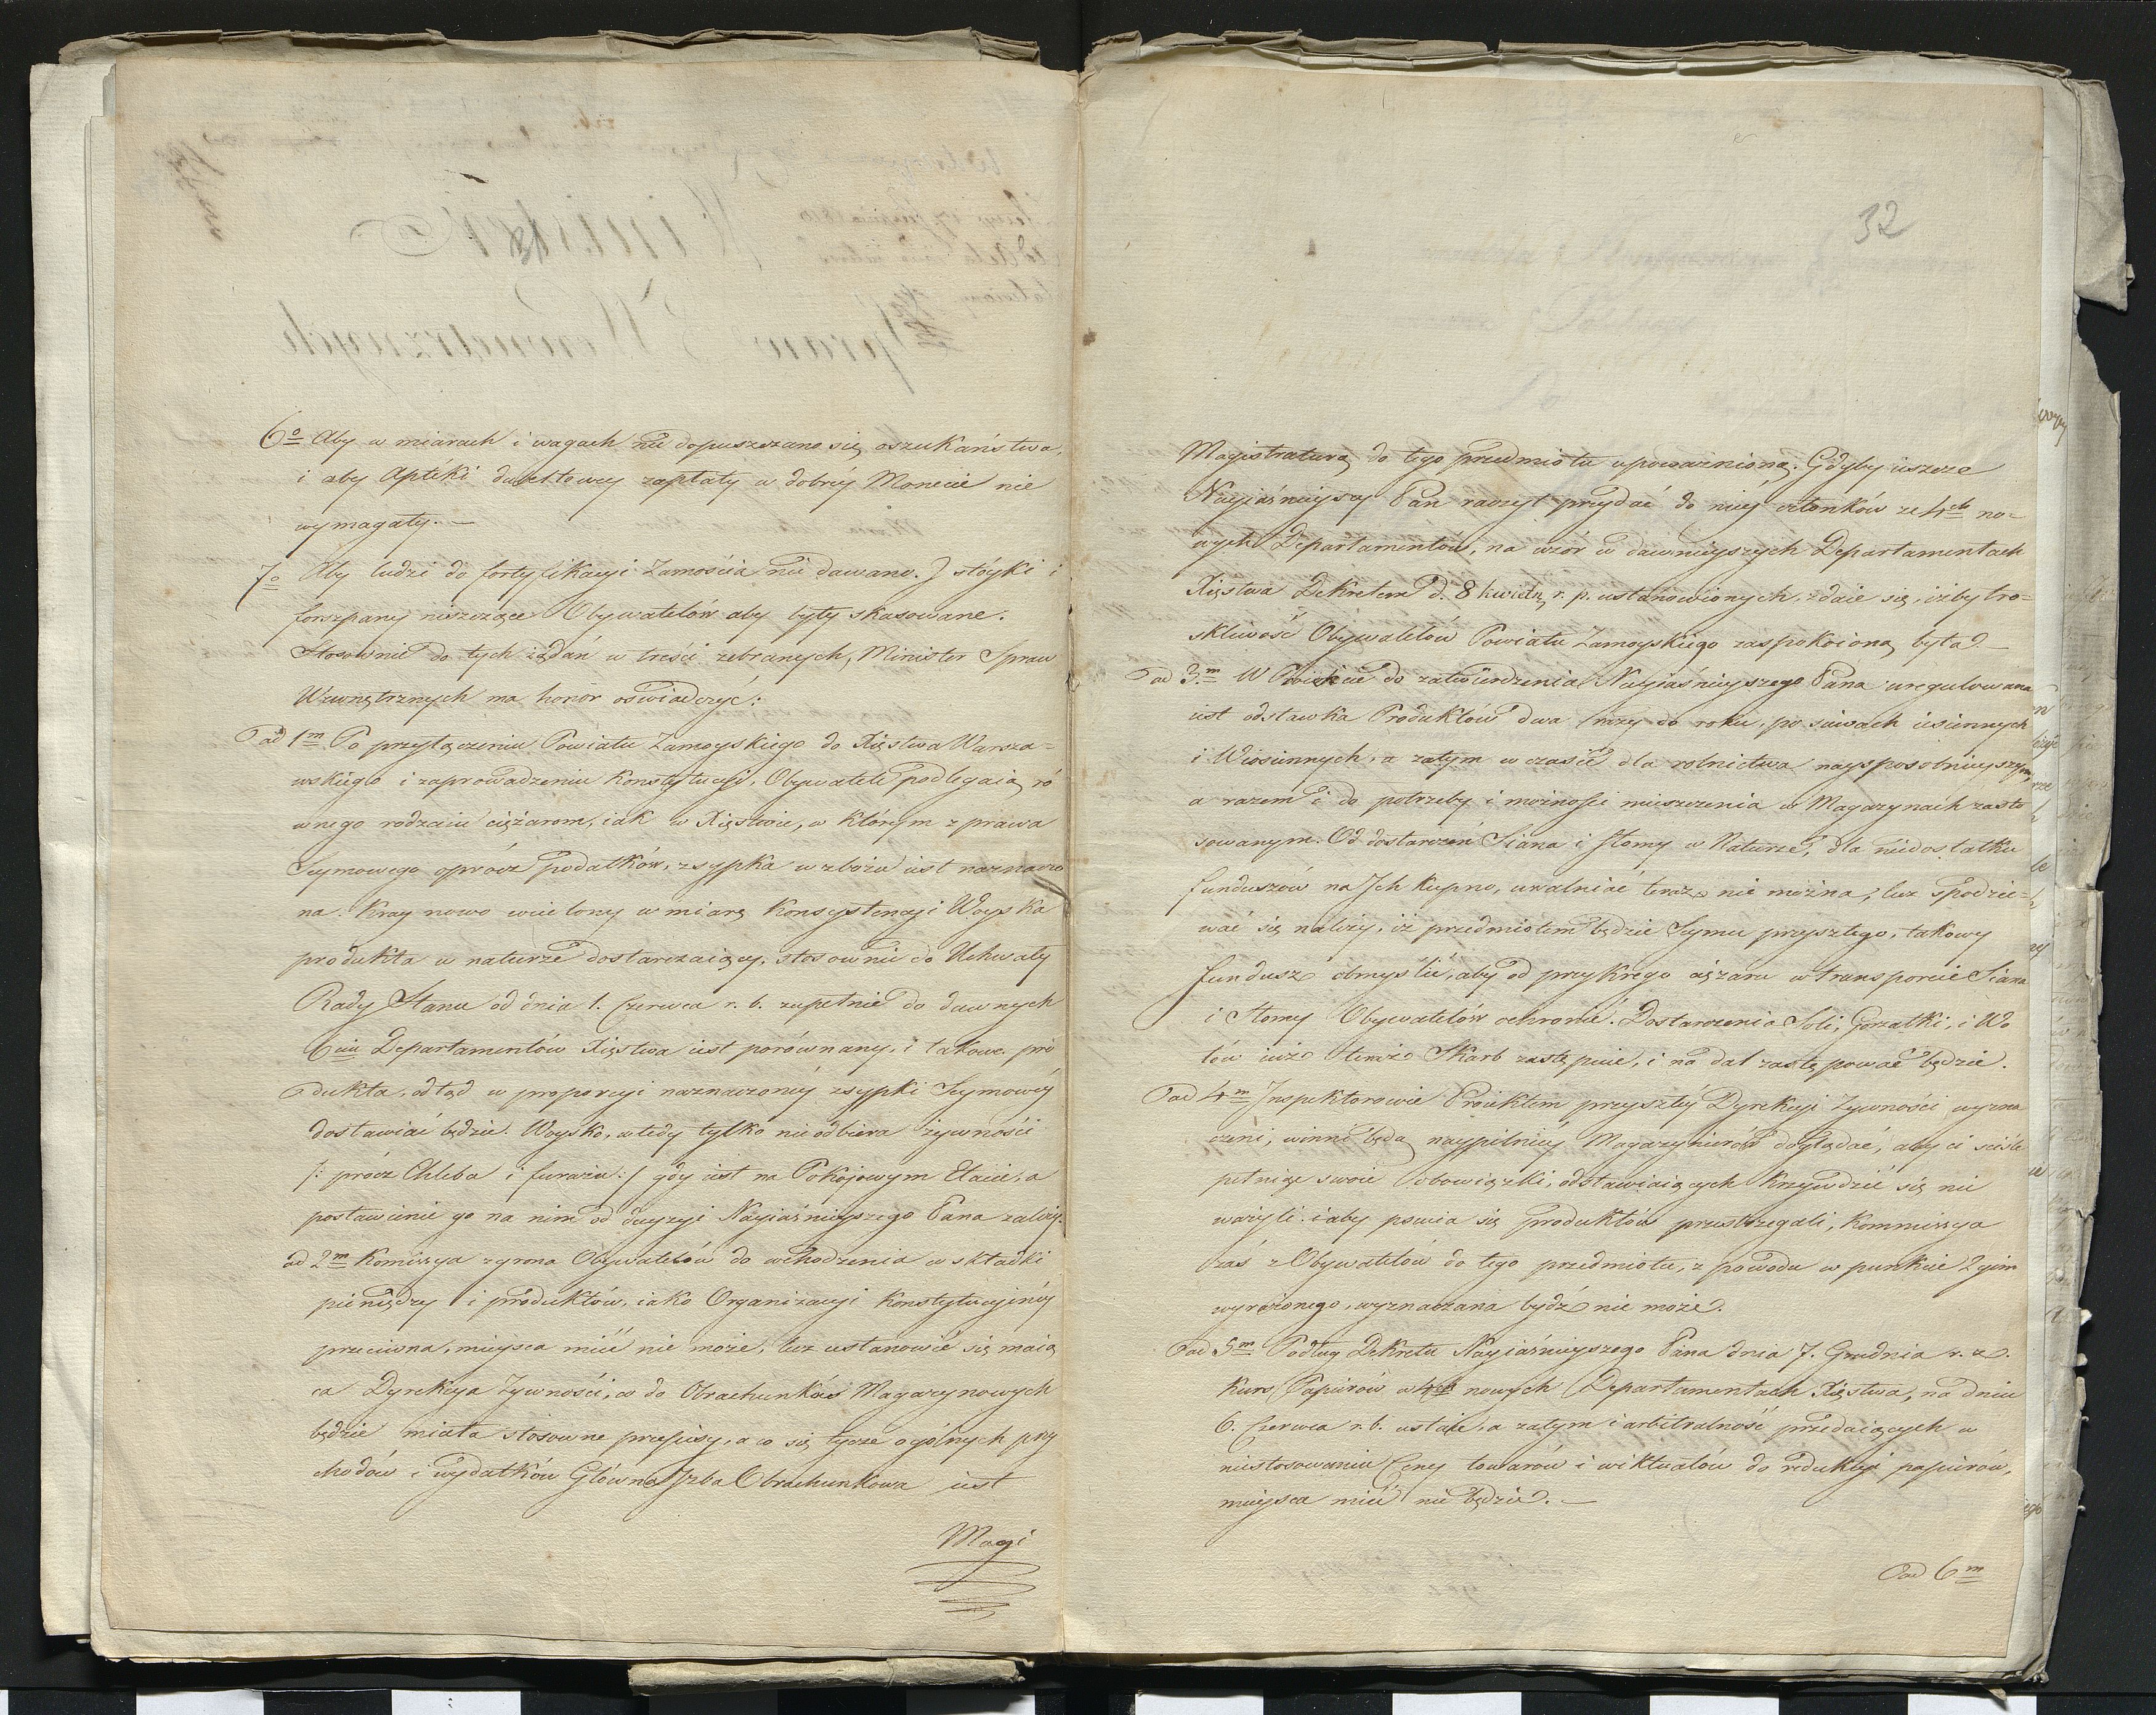 6o Aby w miarach i wagach nie dopuszczano się oszukaństwa,
i aby Aptéki dukttowey zapłaty w dobréy Monecie nie
wymagały. —
7o Aby ludzi do fortyfikacyi Zamościa nie dawano. J stóyki i
forszpany niszczące Obywatelów aby były skasowane.
Stosownie do tych żądań w treści zebranych, Minister Spraw
Wewnętrznych ma honor oświadczyć:
ad 1m Po przyłączeniu Powiatu Zamoyskiego do Xięstwa Warsza=
wskiego i zaprowadzeniu Konstytucyi, Obywatele podlegaią ró
wnego rodzaiu ciężarom, iak w Xięstwie, w którym z prawa
Seymowego oprócz podatków, zsypka w zbożu iest naznaczo
na. Kray nowo wcielony w miarę Konsystencyi Woyska
produkta w naturze dostarczaiący, stosownie do Uchwały
Rady Stanu od dnia 1. Czerwca r. b. zupełnie do dawnych
6ciu Departamentów Xięstwa iest porównany, i takowe pro
dukta, odtąd w proporcyi naznaczonéy zsypki Seymowéy
dostawiać będzie. Woysko, wtedy tylko nie odbiera żywności
/: prócz Chleba i furażu :/ gdy iest na Pokojowym Etacie, a
postawienie go na nim od decyzyi Nayiaśnieyszego Pana zależy.
ad 2m Komissya z grona Obywatelów do wchodzenia w składki
pieniędzy i produktów, iako Organizacyi Konstytucyinéy
przeciwna, mieysca mieć nie może, lecz ustanowić się maią
ca Dyrekcya Żywności, co do Obrachunków Magazynowych
będzie miała stosowne przepisy, a co się tycze ogólnych przy
chodów i wydatków Główna Jzba Obrachunkowa iest
Magi
32
Magistraturą do tego przedmiotu upoważnioną. Gdyby ieszcze
Nayiaśnieyszy Pan raczył przydać do niéy członków ze 4ch no=
wych Departamentów, na wzór w dawnieyszych Departamentach
Xięstwa Dekretem d. 8 kwietn. r. p. ustanowionych, zdaie się, iżby tro=
skliwość Obywatelów Powiatu Zamoyskiego zaspokoioną była. —
ad 3m W Proiekcie do zatwierdzenia Nayiaśnieyszego Pana uregulowana
iest odstawka Produktów dwa razy do roku, po siewach iesiennych
i Wiosennych, a zatym w czasie dla rolnictwa naysposobnieyszym,
a razem i do potrzeby i możności mieszczenia w Magazynach zasto
sowanym. Od dostarczeń Siana i Słomy w Naturze, dla niedostatku
funduszów na Jch kupno, uwalniać teraz nie można; lecz spodzie=
wać się należy, iż przedmiotem będzie Seymu przyszłego, takowy
fundusz obmyślić, aby od przykrego ciężaru w transporcie Siana
i Słomy Obywatelów ochronić. Dostarczenia Soli, Gorzałki, i Wo
łów iuż Skarb zastępuie, i na dal zastępować będzie.
ad 4m Jnspektorowie Proiektem przyszłéy Dyrekcyi Żywności wyzna
czeni, winni będą naypilniéy Magazynierów doglądać, aby ci ściśle
pełniąc swoie obowiązki, odstawiaiących krzywdzić się nie
ważyli: i aby psucia się produktów przestrzegali, Kommissya
zaś z Obywatelów do tego przedmiotu, z powodu w punkcie 2gim
wyrażonego, wyznaczana bydź nie może.
ad 5m Podług Dekretu Nayiaśnieyszego Pana dnia 7. Grudnia r. z.
Kurs Papierów w 4ch nowych Departamentach Xięstwa, na dniu
6. Czerwca r. b. ustaie, a zatym i arbitralność przedaiących w
niestosowaniu Ceny towarów i wiktuałów do redukcyi papierów,
mieysca mieć nie będzie. —
ad 6m